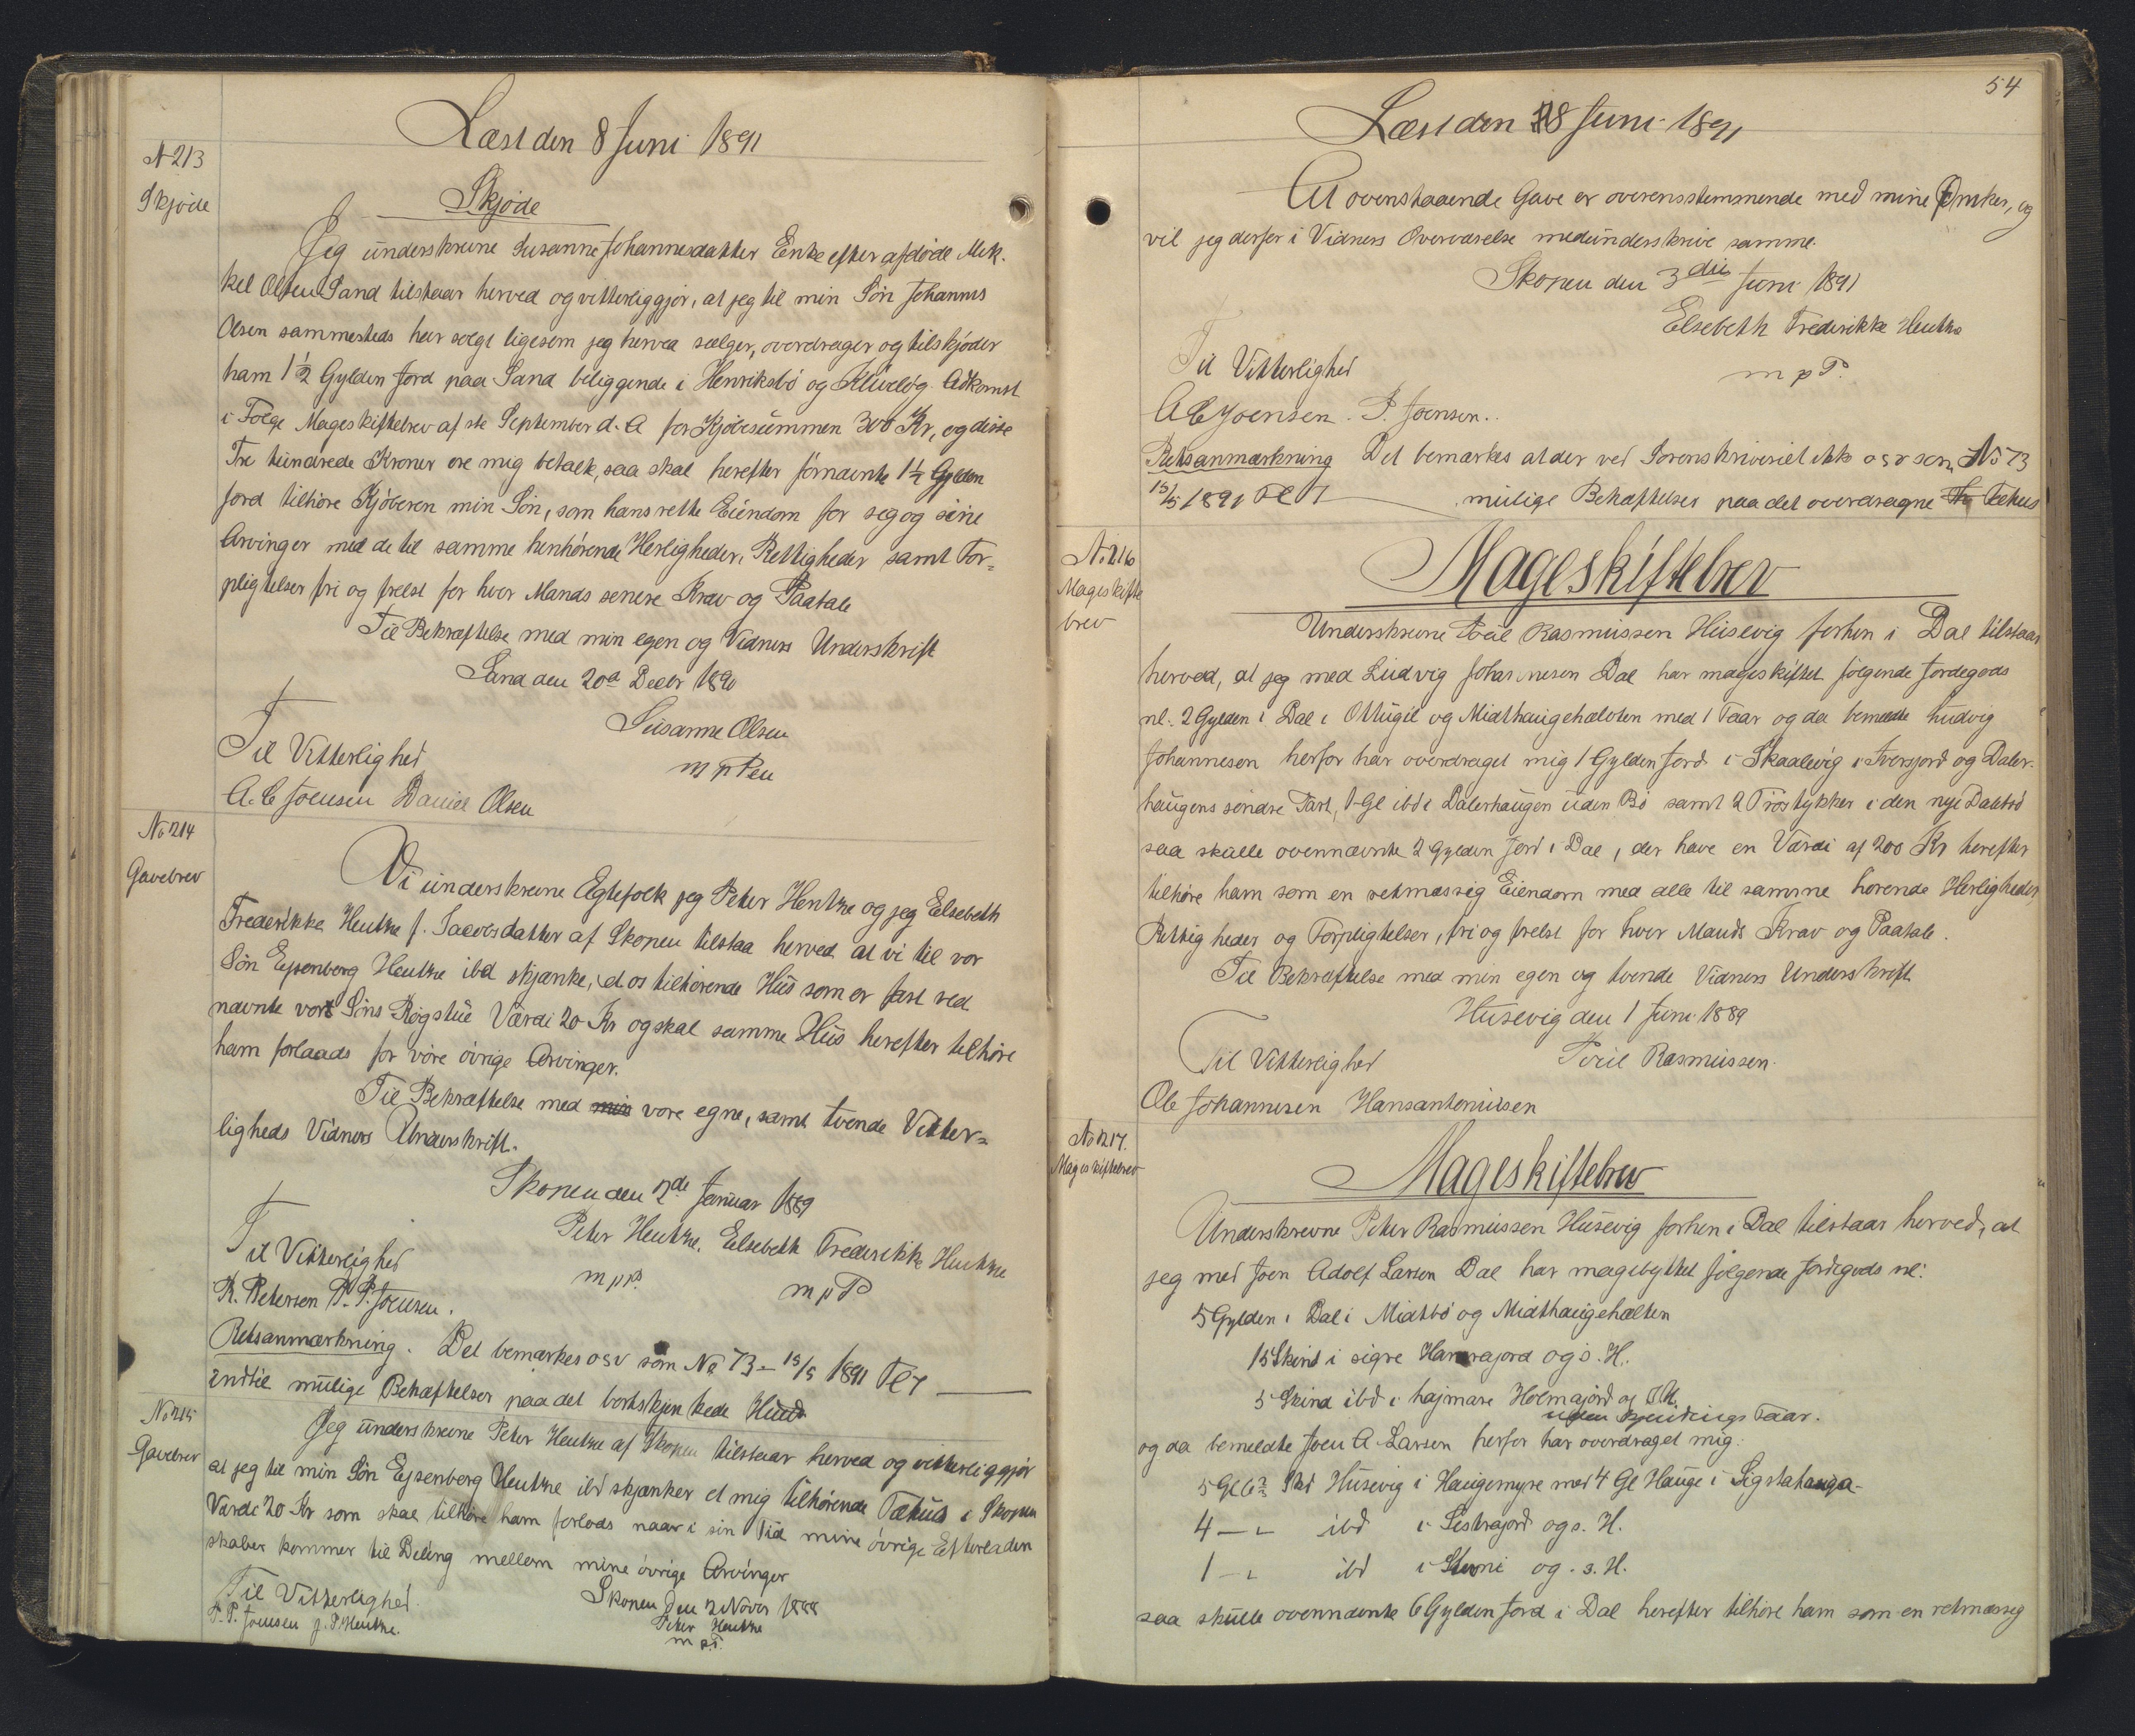 Læst den 8 Juni 1891
N 213
Skjøde
Skjøde
Jeg underskrevne Susanne Johannesdatter Enke efter afdøde Mik-
kel Olsen Sand tilstaar herved og vitterliggjør, at jeg til min Søn Johannes
Olsen sammesteds har solgt ligesom jeg herved sælger, overdrager og tilskjøder
ham 1½ Gylden Jord paa Sand beliggende i Henriksbø og Adkomst
i Følge Mageskiftebrev af ste September d. A for Kjøbesummen 300 Kr, og disse
Tre hundrede Kroner ere mig betalt, saa skal herefter førnævnte 1½ Gylden
Jord tilhøre Kjøberen min Søn, som hans rette Eiendom for seg og sine
Arvinger med de til samme henhørende Herligheder, Rettigheder samt For=
pligtelser fri og frelst for hver Mands senere Krav og Paatale
Til Bekræftelse med min egen og Vidners Underskrift
Sand den 20d Decbr 1890
Susanne Olsen
m p Pen
Til Vitterlighed
A. C Joensen Daniel Olsen
No 214
Gavebrev
Vi underskrevne Egtefolk jeg Peter Hentze og jeg Elsebeth
Frederikke Hentze f. Jacobsdatter af Skopen tilstaa herved at vi til vor
Søn Ejsenberg Hentze ibd skjænke, et os tilhørende Hus som er fast ved
nævnte vort Søns Røgstue Værdi 20 Kr og skal samme Hus herefter tilhøre
ham forlaads for vore øvrige Arvinger.
Til Bekræftelse med min vore egne, samt tvende Vitter=
ligheds Vidners Underskrift.
Skopen den 2de Januar 1889
Peter Hentze. Elsebeth Frederikke Hentze
m p P. m p P
Til Vitterlighed
R. Petersen P. P. Joensen.
Retsanmærkning. Det bemærkes osv som No 73 - 15/5 1891
indtil mulige Behæftelser paa det bortskjenkede Huus
No 215
Gavebrev
Jeg underskrevne Peter Hentze af Skopen tilstaar herved og vitterliggjør
at jeg til min Søn Ejsenberg Hentze ibd skjænker et mig tilhørende Tæhus i Skopen
Værde 20 Kr som skal tilhøre ham forlods naar i sin Tid mine øvrige Efterladen
skaber kommer til Deling mellem mine øvrige Arvinger
Skopen den 2 Novbr 1888
Peter Hentze
m p P.
Til Vitterlighed.
P. P. Joensen J. P Hentze.
54
Læst den 8 Juni 1891
At ovenstaaende Gave er overensstemmende med mine Ønsker, og
vil jeg derfor i Vidners Overværelse medunderskrive samme.
Skopen den 3die Juni 1891
Elsebeth Frederikke Hentze
m p P.
Til Vitterlighed
A C Joensen. P. Joensen.
Retsanmærkning Det bemærkes at der ved Sorenskriveriet ikke osv som No 73
15/5 1891 mulige Behæftelser paa det overdragne Tæhus
No 216
Mageskifte
brev
Mageskiftebrev
Underskrevne Poul Rasmussen Husevig forhen i Dal tilstaar
herved, at jeg med Ludvig Johannesen Dal har mageskiftet følgende Jordegods
nl. 2 Gylden i Dal i Ottugil og Midthaugehaloten med 1 Faar og da bemeldte Ludvig
Johannesen herfor har overdraget mig 1 Gylden Jord i Skaalevig i Iversjord og Daler-
haugens søndre Part, 1 Gl ibd i Dalerhaugen uden Bø samt 2 Trøstykker i den nye Dalebø
saa skulle ovennævnte 2 Gylden Jord i Dal, der have en Værdi af 200 Kr herefter
tilhøre ham som en retmæssig Eiendom med alle til samme hørende Herligheder,
Rettigheder og Forpligtelser, fri og frelst for hver Mands Krav og Paatale.
Til Bekræftelse med min egen og tvende Vidners Underskrift
Husevig den 1 Juni 1889
Poul Rasmussen.
Til Vitterlighed
Ole Johannesen Hansantoniusen
No 217.
Mageskiftebrev
Mageskiftebrev
Underskrevne Peter Rasmussen Husevig forhen i Dal tilstaar herved, at
jeg med Joen Adolf Larsen Dal har magebyttet følgende Jordegods nl:
5 Gylden i Dal i Midtbø og Midthaugehalten
15 Skind i signe og s. H.
5 Skind ibd i hajmare Holmajord og s H.
uden Faar.
og da bemeldte Joen A. Larsen herfor har overdraget mig:
5 Gl Husevig i Haugemyre med 4 Gl Hauge i Sigstahauga-
4 — ibd i Sistrajord og s. H.
1 — ibd i og . s. H.
saa skulle ovennævnte 6 Gylden Jord i Dal herefter tilhøre ham som en retmæssig